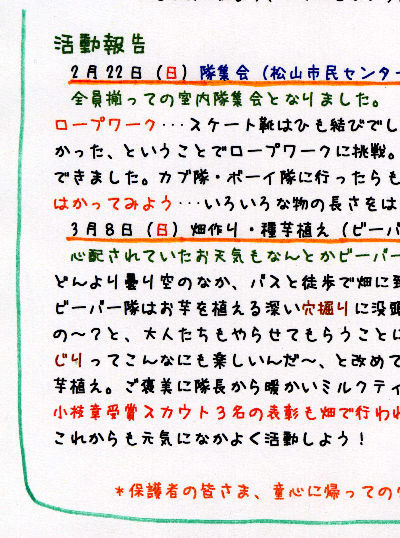 活動報告
2月22日（日）隊集会（松山市民センター
全員揃っての室内隊集会となりました。
ロープワーク･･･スケート靴はひも結びでし
かった、ということでロープワークに挑戦。
できました。カブ隊・ボーイ隊に行ったらも
はかってみよう･･･いろいろな物の長さをは
3月8日（日）畑作り・種芋植え（ビーバ
心配されていたお天気もなんとかビーバー
どんより曇り空のなか、バスと徒歩で畑に到
ビーバー隊はお芋を植える深い穴掘りに没頭
の～？と、大人たちもやらせてもらうことに
じりってこんなにも楽しいんだ～、と改めて
芋植え。ご褒美に隊長から暖かいミルクティ
小枝章受賞スカウト3名の表彰も畑で行われ
これからも元気になかよく活動しよう！
*保護者の皆さま、童心に帰っての